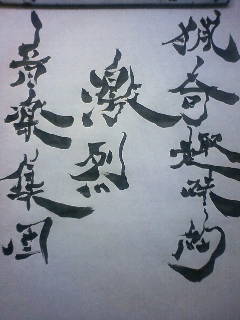 猟奇趣味的
激烈
音楽集団